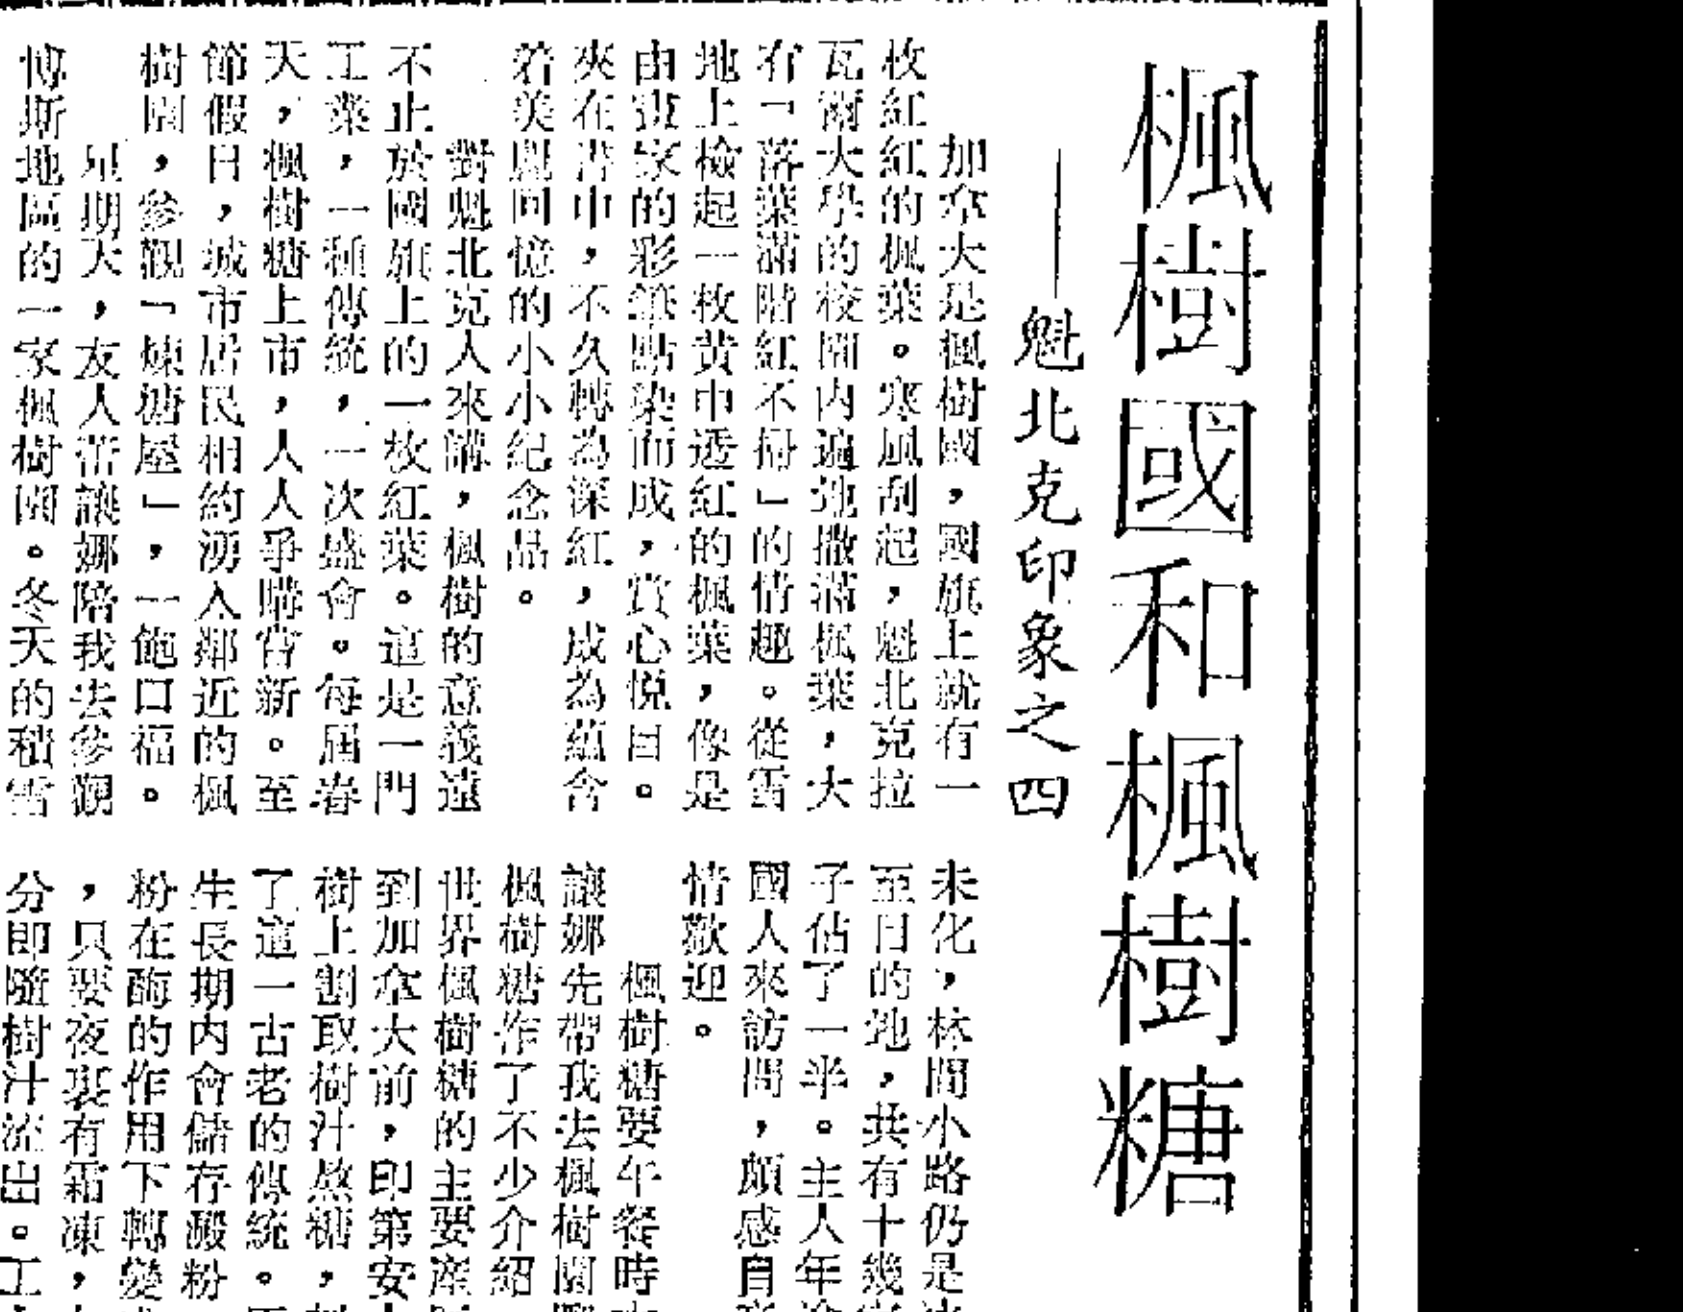 楓樹國和楓樹糖
——魁北克印象之四
加拿大是楓樹國，國旗上就有一
枚紅紅的楓葉。寒風刮起，魁北克拉
瓦爾大學的校園內遍地撒滿楓葉，大
有「落葉滿階紅不掃」的情趣。從雪
地上檢起一枚黃中透紅的楓葉，像是
由畫家的彩筆點染而成，賞心悅目。
夾在書中，不久轉為深紅，成為蘊含
着美麗回憶的小小紀念品。
對魁北克人來講，楓樹的意義遠
不止於國旗上的一枚紅葉。這是一門
工業，一種傳統，一次盛會。每屆春
天，楓樹糖上市，人人爭購嘗新。至
節假日，城市居民相約湧入鄰近的楓
樹園，參觀「煉糖屋」，一飽口福。
星期天，友人雷讓娜陪我去參觀
博斯地區的一家楓樹園。冬天的積雪
未化，林間小路仍是
至日的地，共有十幾
子佔了一半。主人年
國人來訪問，頗感自
情歡迎。
楓樹糖要午餐時
讓娜先帶我去楓樹園
楓樹糖作了不少介紹
世界楓樹糖的主要產
到加拿大前，印第安
樹上割取樹汁熬糖，
了這一古老的傳統。
生長期內會儲存澱粉
粉在酶的作用下轉變
，只要夜裏有霜凍，
分即隨樹汁流出。工